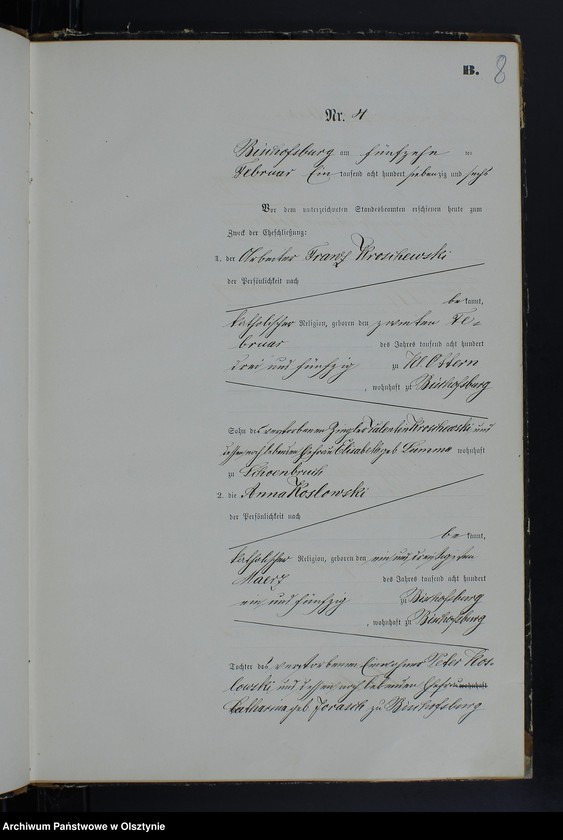 B. 8
Nr. 4
Bischofsburg am fünfzehn ten
Februar Ein tausend acht hundert siebenzig und sechs
Vor dem unterzeichneten Standesbeamten erschienen heute zum
Zweck der Eheschließung:
1. der Arbeiter Franz Kroschewski
der Persönlichkeit nach
bekannt,
katholischer Religion, geboren den zweiten Fe-
bruar des Jahres tausend acht hundert
drei und fünfzig zu Kl. Ottern
, wohnhaft zu Bischofsburg
Sohn des verstorbenen Ziegler Valentin Kroschewski und
dessen noch lebenden Ehefrau Elisabeth geb wohnhaft
zu Schoenbruch
2. die Anna Koslowski
der Persönlichkeit nach
bekannt,
katholischer Religion, geboren den ein und dreißigsten
Maerz des Jahres tausend acht hundert
ein und fünfzig zu Bischofsburg
, wohnhaft zu Bischofsburg
Tochter des verstorbenen Einwohner Peter Kos-
lowski und dessen noch lebenden Ehefrau wohnhaft
Catharina geb. zu Bischofsburg
Archiwum Państwowe w Olsztynie